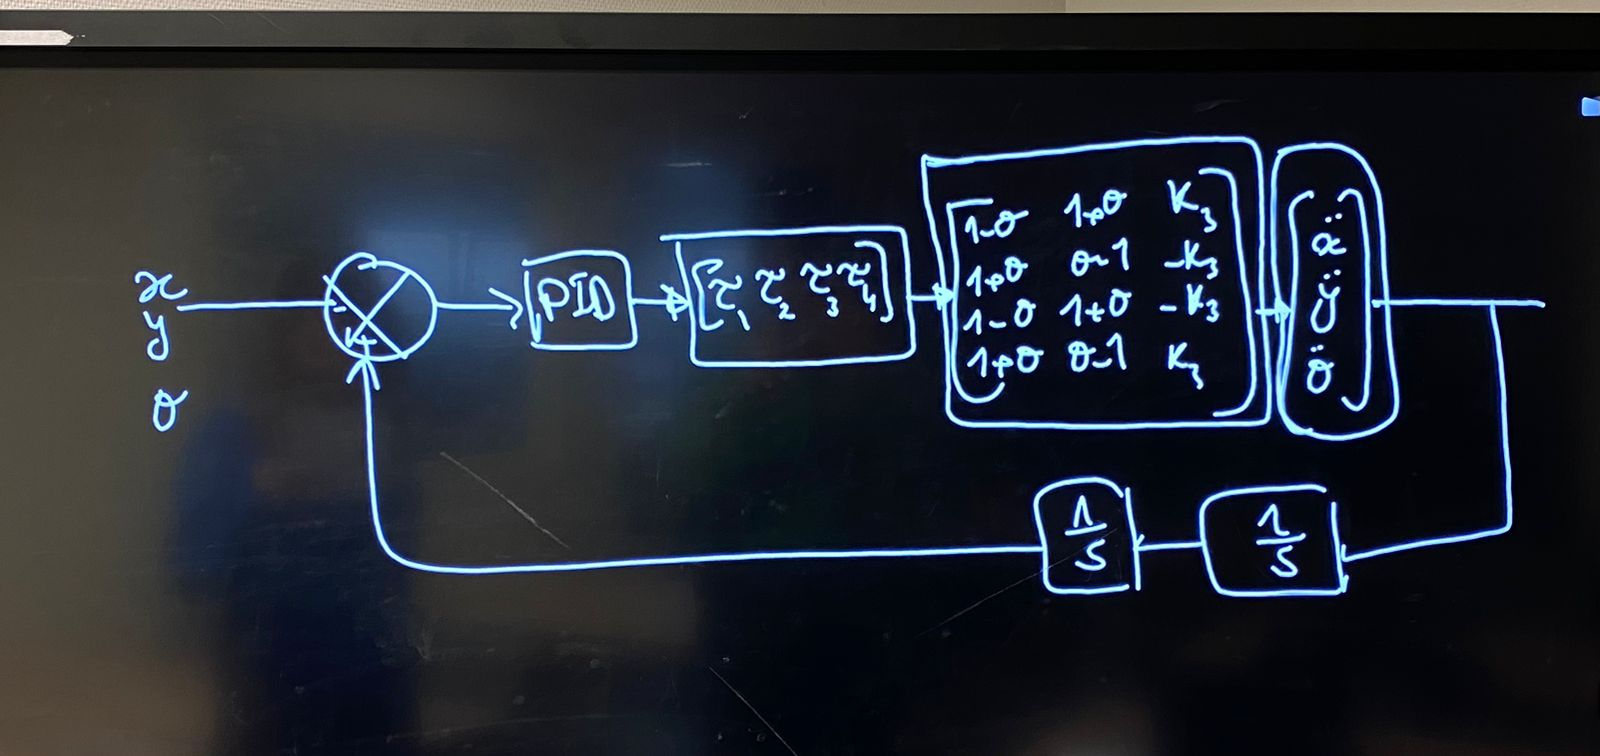 x
y
θ
-
+
PID
[τ₁ τ₂ τ₃ τ₄]
1-θ 1+θ K₃
1+θ θ-1 -K₃
1-θ 1+θ -K₃
1+θ θ-1 K₃
ẍ
ÿ
θ̈
1/S
1/S